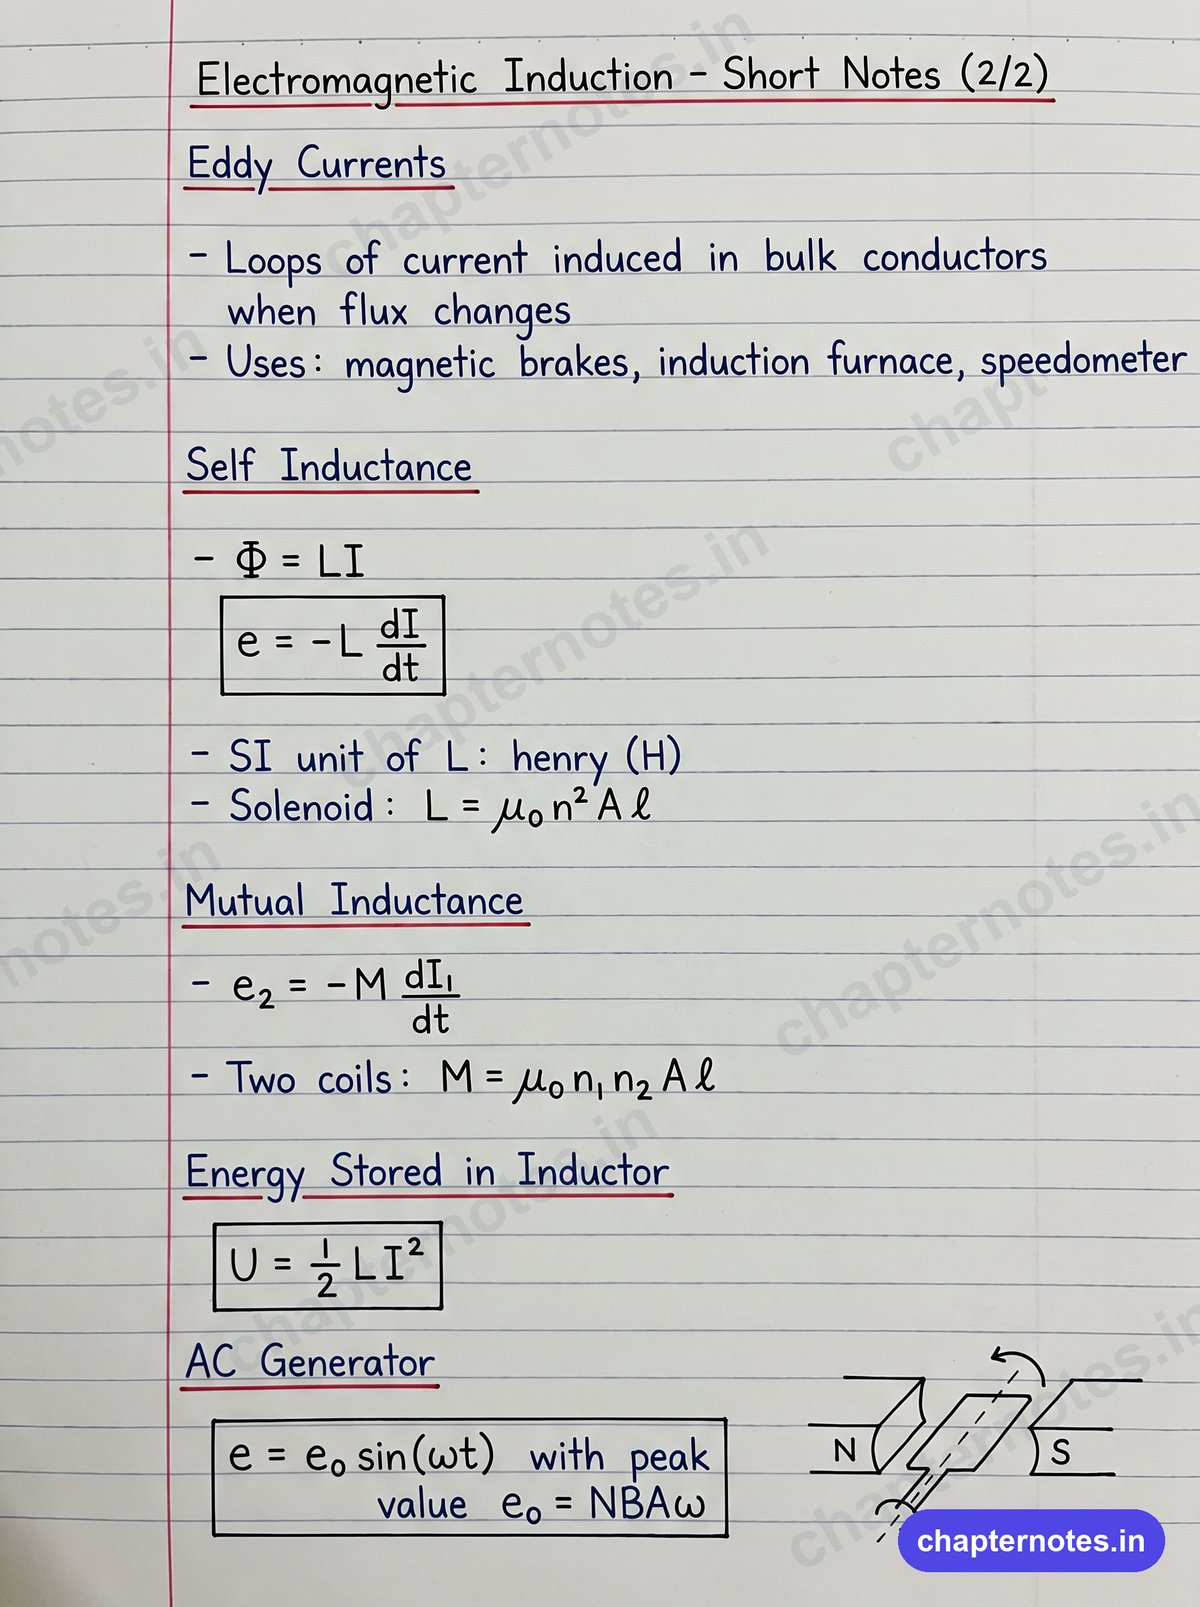 Electromagnetic Induction – Short Notes (2/2)
Eddy Currents
– Loops of current induced in bulk conductors
when flux changes
– Uses: magnetic brakes, induction furnace, speedometer
Self Inductance
– Φ = LI
e = -L dI/dt
– SI unit of L: henry (H)
– Solenoid: L = μ₀n²Aℓ
Mutual Inductance
– e₂ = -M dI₁/dt
– Two coils: M = μ₀n₁n₂Aℓ
Energy Stored in Inductor
U = 1/2 LI²
AC Generator
e = e₀ sin(ωt) with peak
value e₀ = NBAω
N S
chapternotes.in